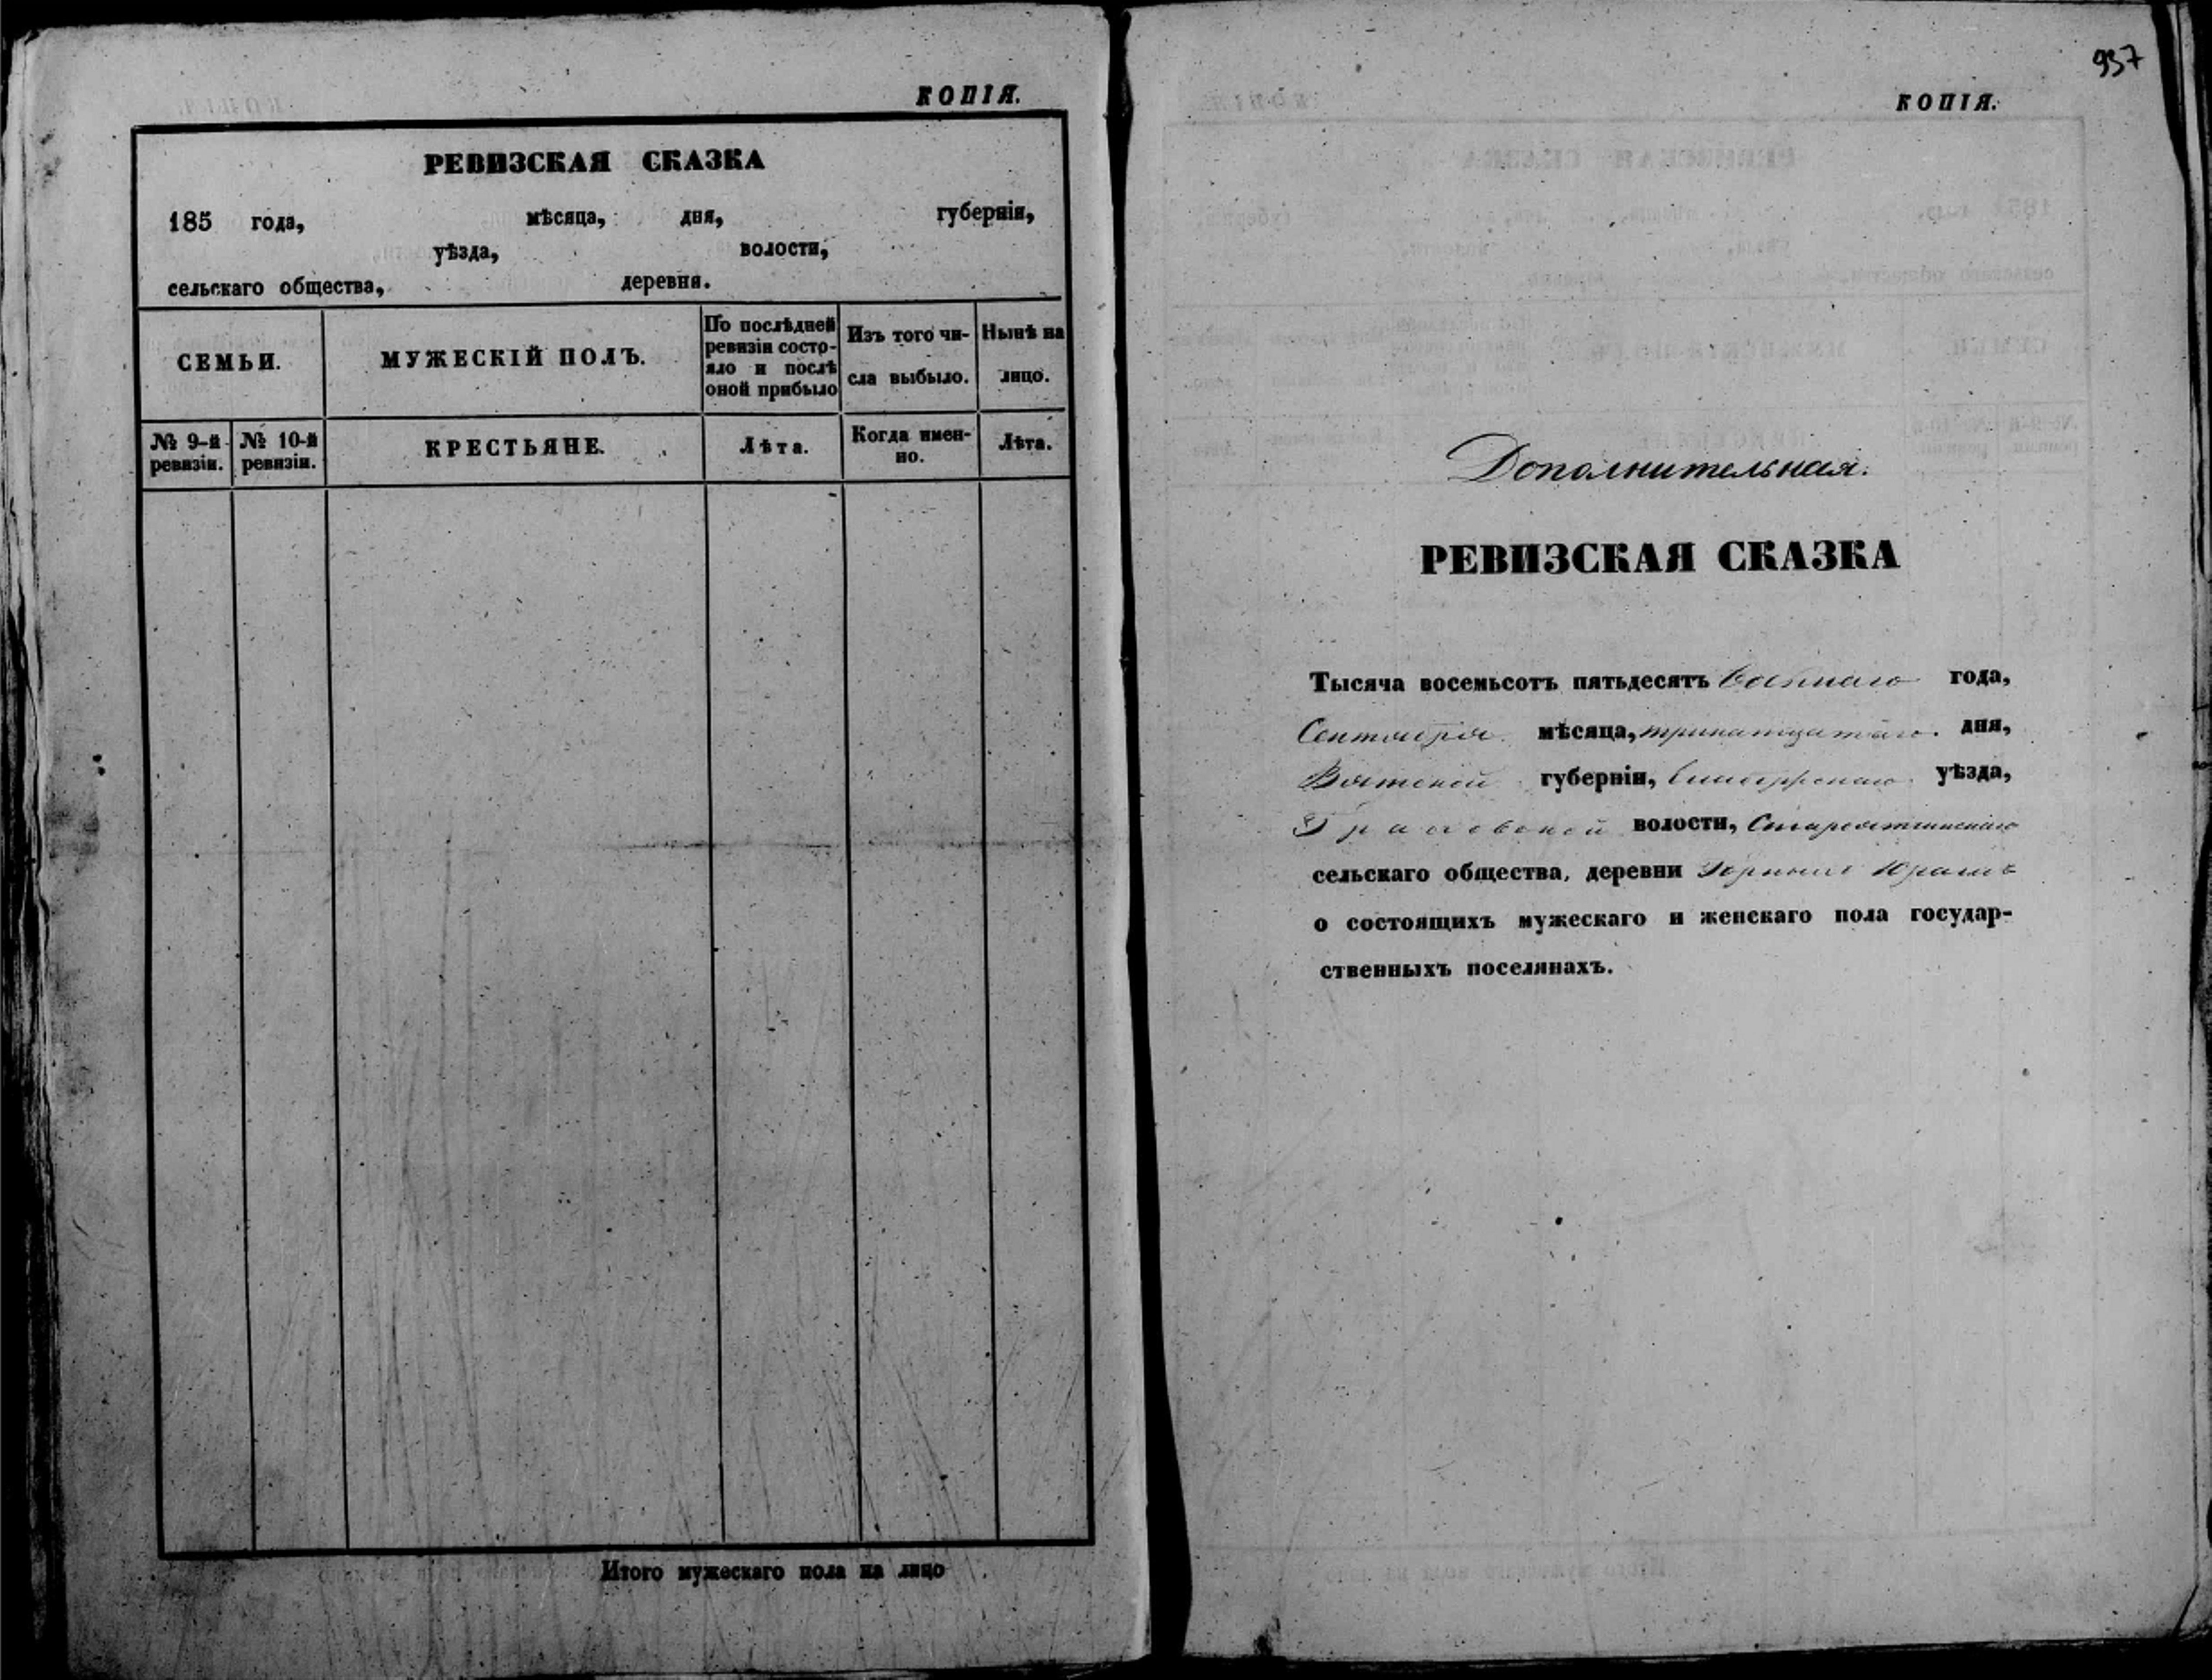 КОПІЯ.
РЕВИЗСКАЯ СКАЗКА
185 года, мѣсяца, дня, губерніи,
уѣзда, волости,
сельскаго общества, деревня.
СЕМЬИ.
МУЖЕСКІЙ ПОЛЪ.
По послѣдней
ревизіи состо-
яло и послѣ
оной прибыло
Изъ того чи-
сла выбыло.
Нынѣ на
лицо.
№ 9-й
ревизіи.
№ 10-й
ревизіи.
КРЕСТЬЯНЕ.
Лѣта.
Когда имен-
но.
Лѣта.
Итого мужескаго пола на лицо
937
КОПІЯ.
Дополнительная.
РЕВИЗСКАЯ СКАЗКА
Тысяча восемьсотъ пятьдесятъ года,
Сентября мѣсяца, тринатцатаго дня,
Вятской губерніи, уѣзда,
волости,
сельскаго общества, деревни
о состоящихъ мужескаго и женскаго пола государ-
ственныхъ поселянахъ.